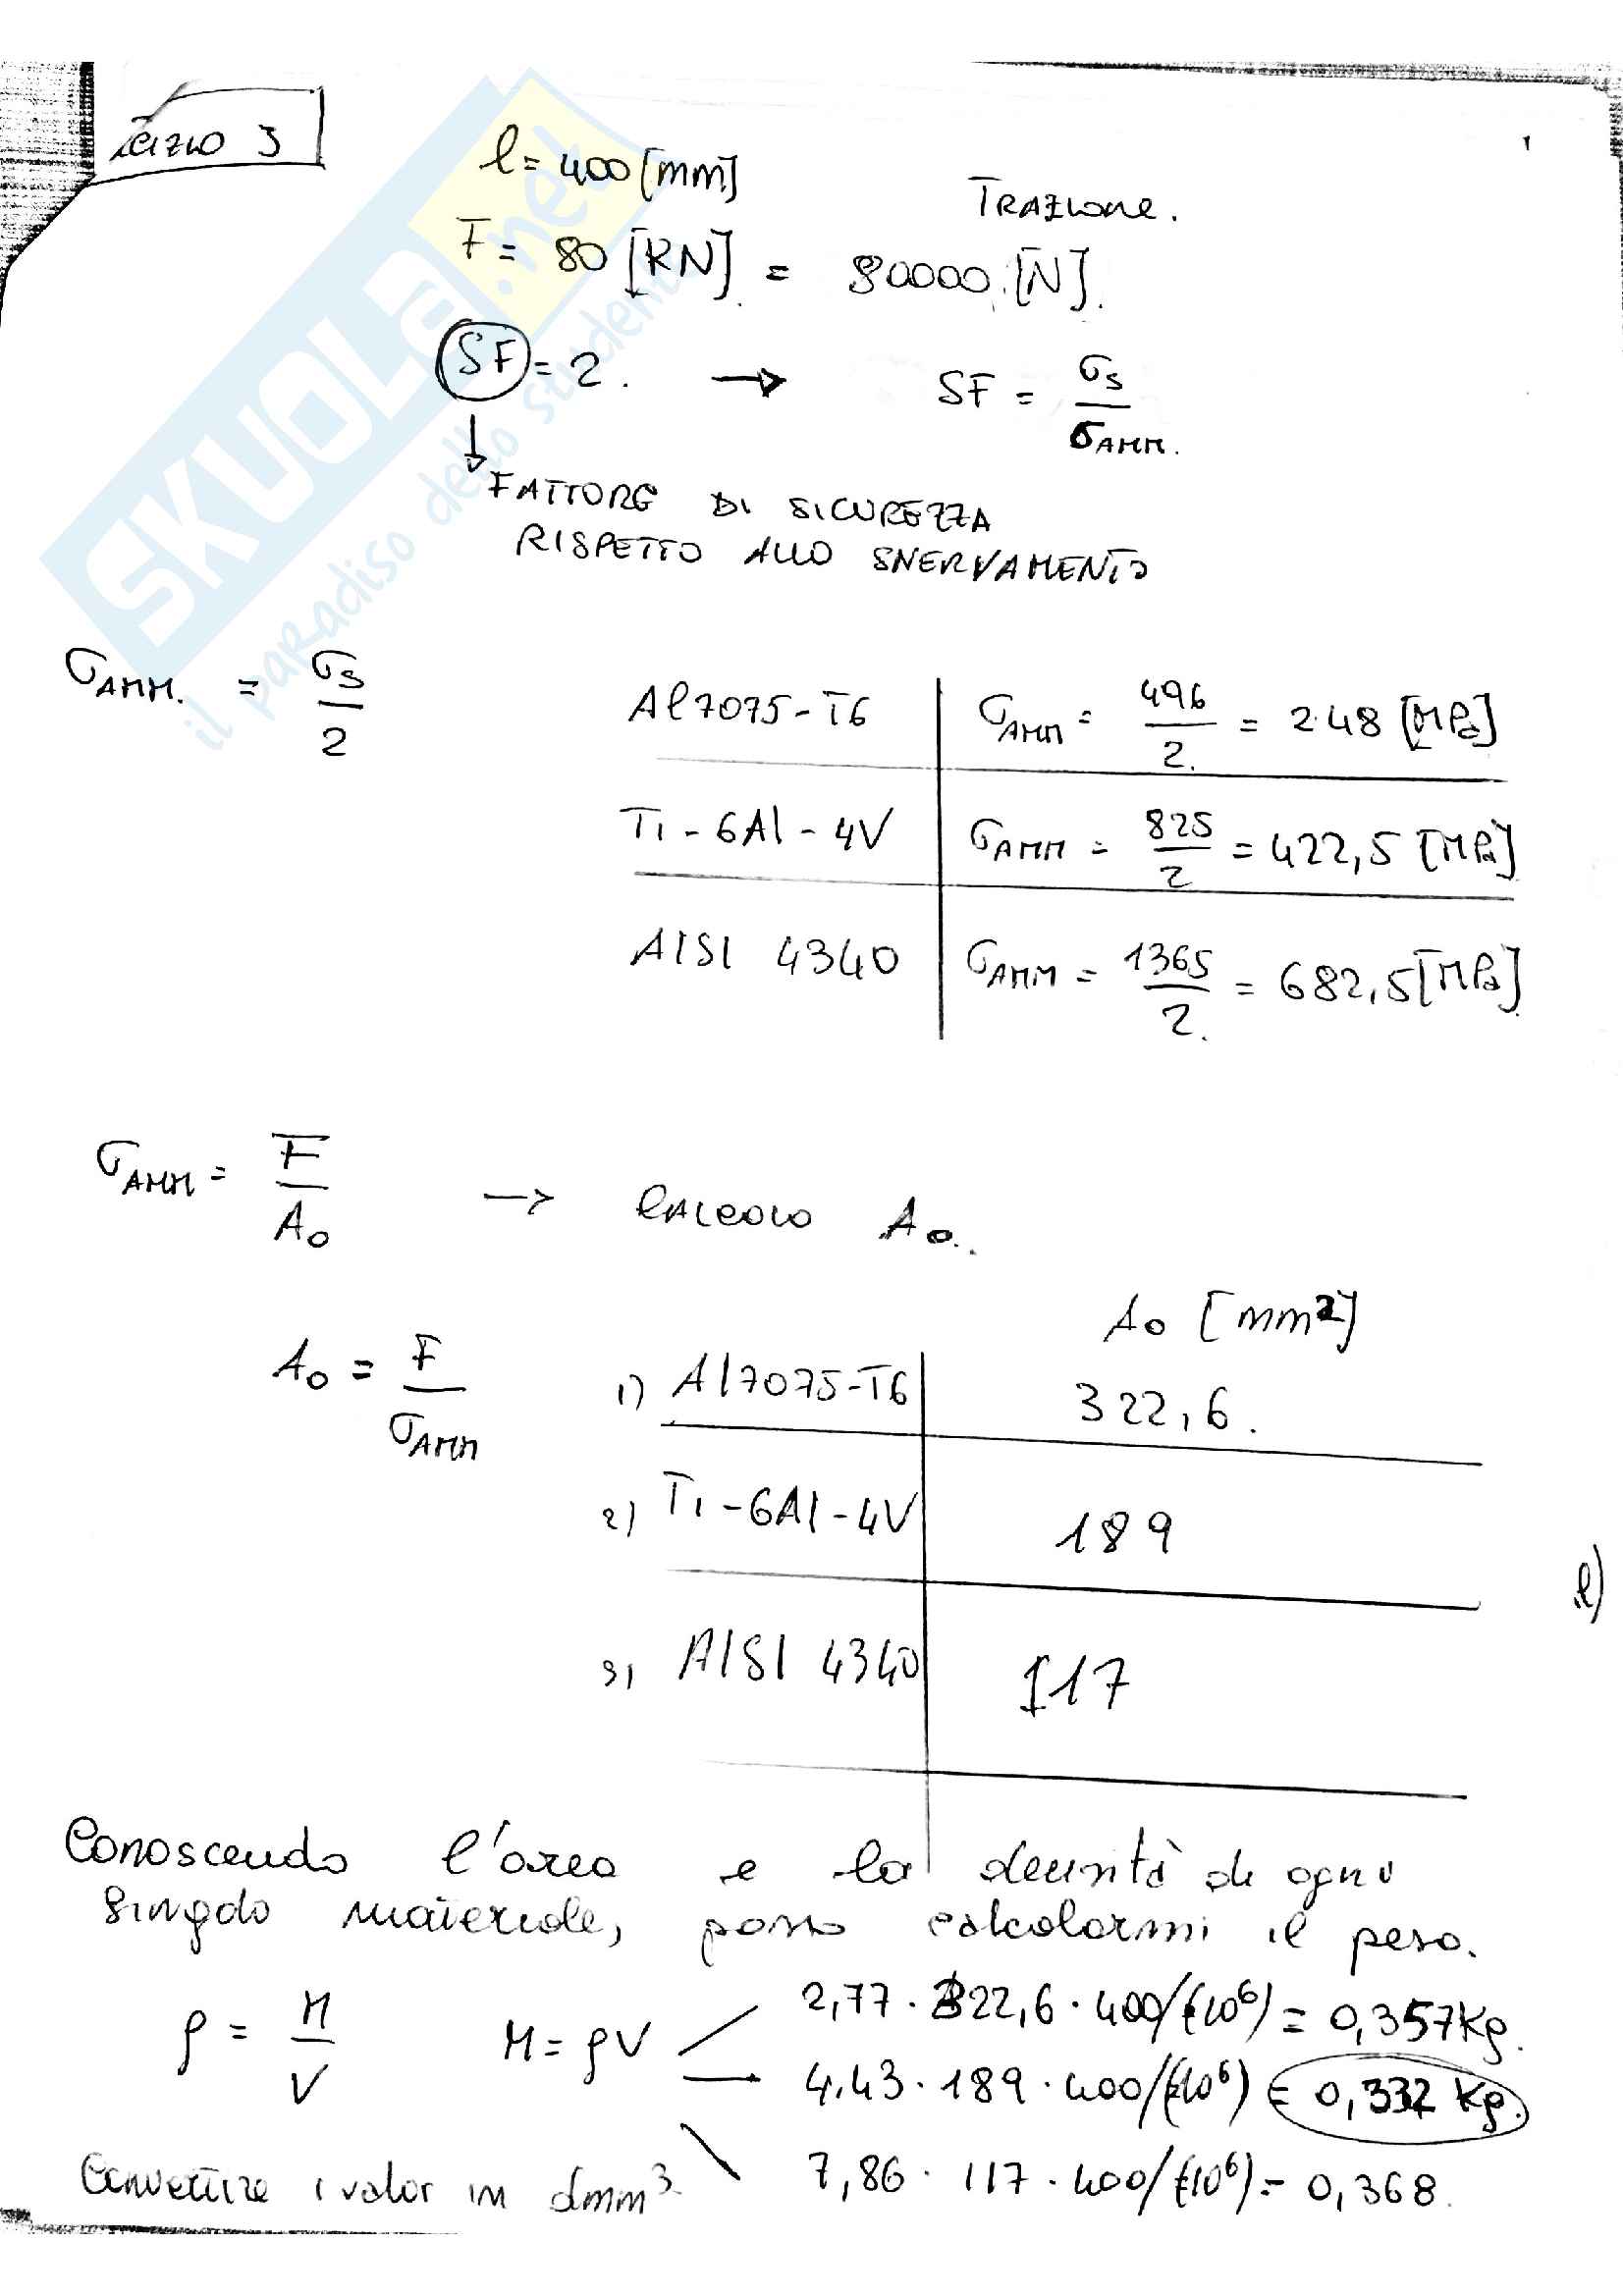 l = 400 [mm]
TRAZIONE.
F = 80 [KN] = 80000 [N].
SF = 2. → SF = σs / σAMM.
↓
FATTORE DI SICUREZZA
RISPETTO ALLO SNERVAMENTO
SKUOLA.net
il paradiso dello studente
σAMM. = σs / 2
Al7075-T6 | σAMM = 496 / 2. = 248 [MPa]
Ti-6Al-4V | σAMM = 825 / 2 = 422,5 [MPa]
AISI 4340 | σAMM = 1365 / 2. = 682,5 [MPa]
σAMM = F / A0 → CALCOLO A0.
A0 = F / σAMM
A0 [mm2]
1) Al7075-T6 | 322,6.
2) Ti-6Al-4V | 189
3) AISI 4340 | 117
e)
Conoscendo l'area e la densità di ogni
singolo materiale, posso calcolarmi il peso.
ρ = M / V
M = ρV
2,77 · 322,6 · 400/(10^6) = 0,357 Kg.
4,43 · 189 · 400/(10^6) = 0,332 Kg.
7,86 · 117 · 400/(10^6) = 0,368.
Convertire i valori in dmm3